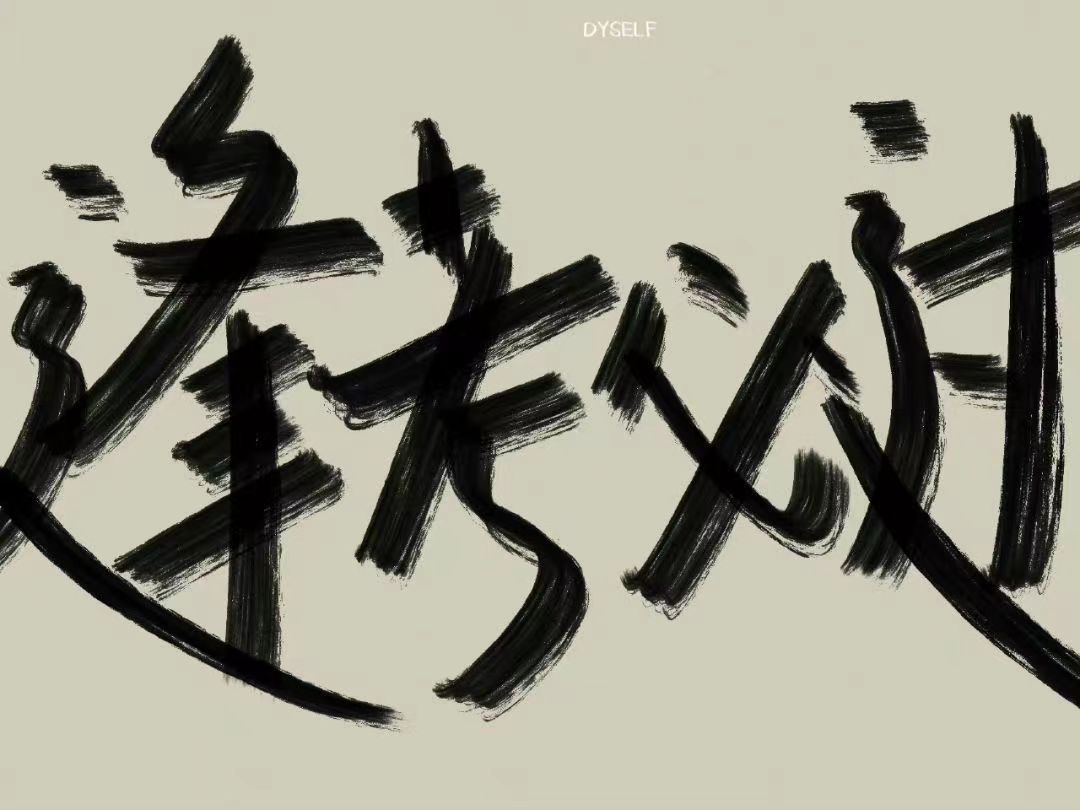 DYSELF
逢考必过